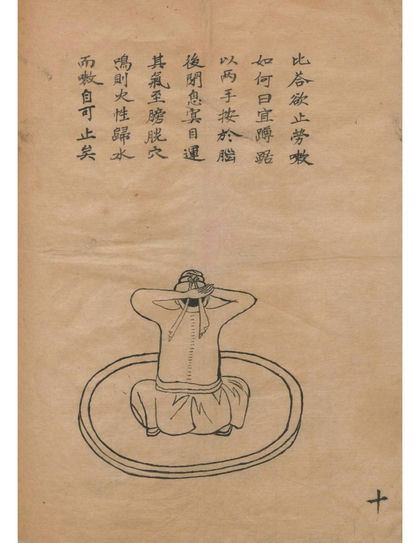 比答欲止劳嗽
如何曰宜蹲踞
以两手按於腦
後閉息寞目運
其氣至膀胱穴
鳴則火性歸水
而嗽自可止矣
十